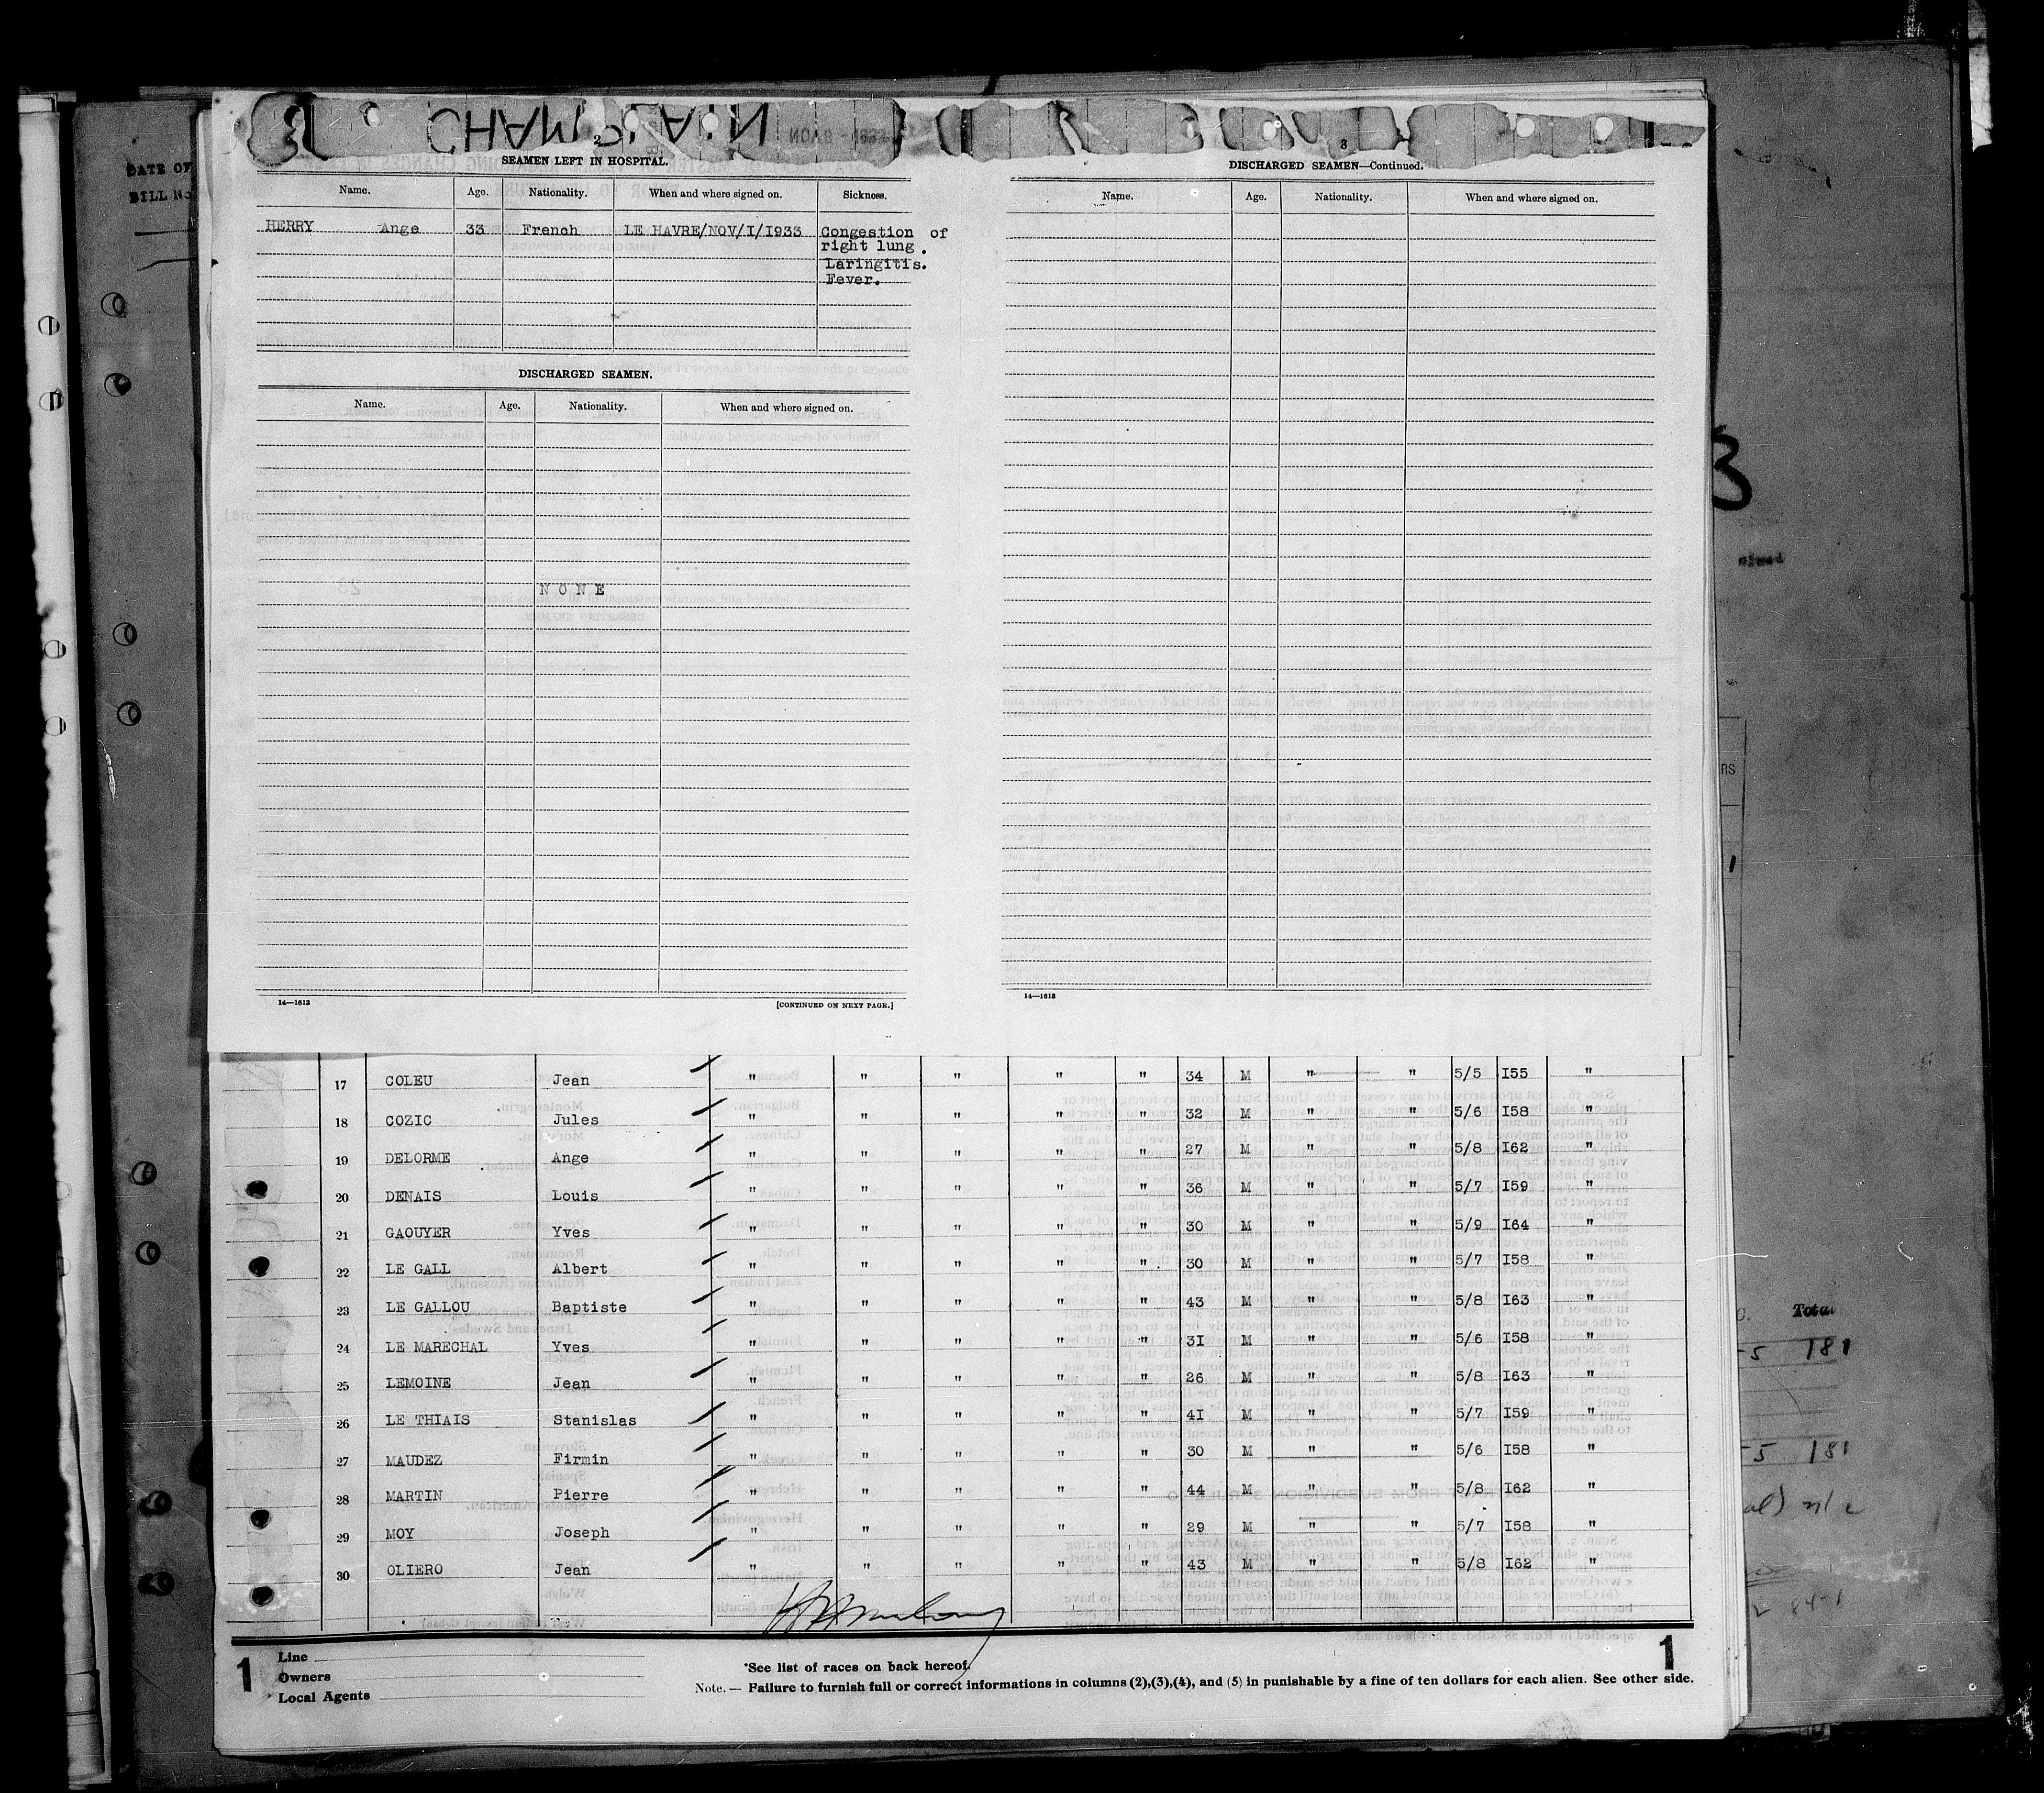 DATE OF
BILL No
CHAMPLAIN
2
SEAMEN LEFT IN HOSPITAL.
Name. Age. Nationality. When and where signed on. Sickness.
HERRY Ange 33 French LE HAVRE/NOV/I/1933 Congestion of
right lung.
Laringitis.
Fever.
DISCHARGED SEAMEN.
Name. Age. Nationality. When and where signed on.
N O N E
14—1613 [CONTINUED ON NEXT PAGE.]
3
DISCHARGED SEAMEN—Continued.
Name. Age. Nationality. When and where signed on.
14—1613
17 COLEU Jean " " " " " 34 M " " 5/5 I55 "
18 COZIC Jules " " " " " 32 M " " 5/6 I58 "
19 DELORME Ange " " " " " 27 M " " 5/8 I62 "
20 DENAIS Louis " " " " " 36 M " " 5/7 I59 "
21 GAOUYER Yves " " " " " 30 M " " 5/9 I64 "
22 LE GALL Albert " " " " " 30 M " " 5/7 I58 "
23 LE GALLOU Baptiste " " " " " 43 M " " 5/8 I63 "
24 LE MARECHAL Yves " " " " " 3I M " " 5/6 I58 "
25 LEMOINE Jean " " " " " 26 M " " 5/8 I63 "
26 LE THIAIS Stanislas " " " " " 4I M " " 5/7 I59 "
27 MAUDEZ Firmin " " " " " 30 M " " 5/6 I58 "
28 MARTIN Pierre " " " " " 44 M " " 5/8 I62 "
29 MOY Joseph " " " " " 29 M " " 5/7 I58 "
30 OLIERO Jean " " " " " 43 M " " 5/8 I62 "
1 Line
Owners
Local Agents
*See list of races on back hereof.
Note.— Failure to furnish full or correct informations in columns (2),(3),(4), and (5) in punishable by a fine of ten dollars for each alien. See other side.
1
3
RS
1
Total
-5 181
5 181